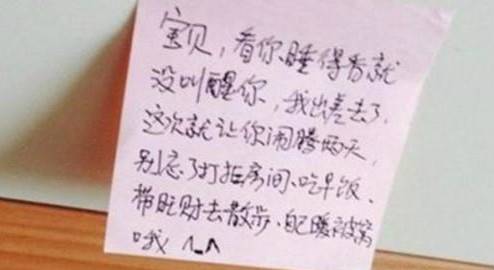 宝贝，看你睡得香就
没叫醒你，我出差去了，
这次就让你闹腾两天，
别忘了打扫房间、吃早饭、
带旺财去散步、自己暖被窝
哦！^_^